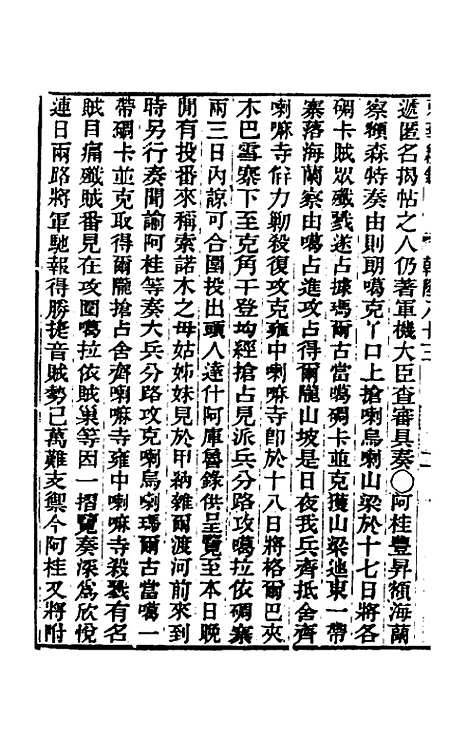 遞匿名揭帖之人仍著軍機大臣查審具奏〇阿桂豐昇額海蘭
察額森特奏由則朗噶克丫口上搶喇烏喇山梁於十七日將各
碉卡賊眾殲戮遂占據瑪爾古當噶碉卡並克獲山梁迤東一帶
寨落海蘭察由噶占進攻占得爾隴山坡是日夜我兵齊抵舍齊
喇嘛寺倂力勦殺復攻克雍中喇嘛寺卽於十八日將格爾巴夾
木巴雪寨下至克角干登均經搶占見派兵分路攻噶拉依碉寨
兩三日內諒可合圍投出頭人達什阿庫魯錄供呈覽至本日晚
閒有投番來稱索諾木之母姑姊妹見於甲納雜爾渡河前來到
時另行奏聞諭阿桂等奏大兵分路攻克喇烏喇瑪爾古當噶一
帶碉卡並克取得爾隴搶占舍齊喇嘛寺雍中喇嘛寺殺戮有名
賊目痛殲賊番見在攻圍噶拉依賊巢等因一摺覽奏深爲欣悅
連日兩路將軍馳報得勝捷音賊勢已萬難支禦今阿桂又將附